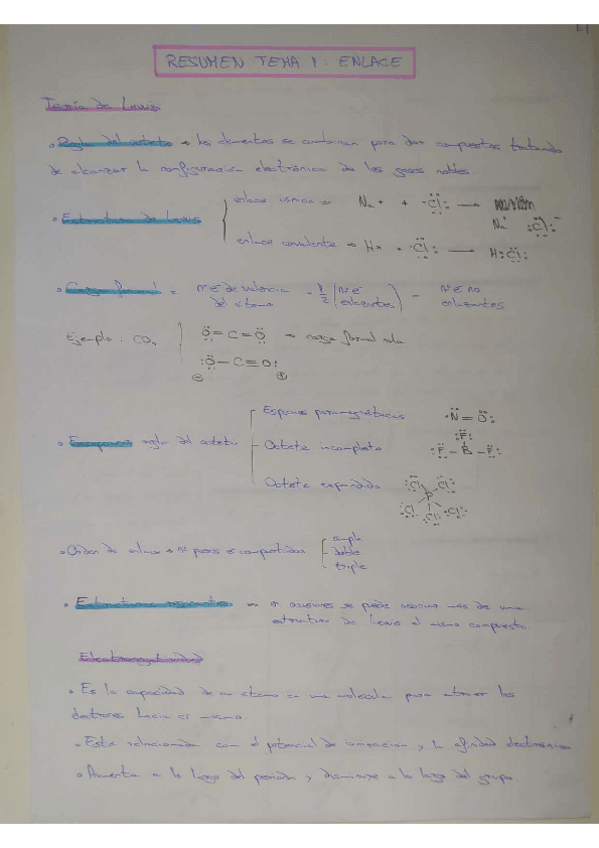 RESUMEN TEMA 1: ENLACE
Teoría de Lewis
Regla del octeto → los elementos se combinan para dar compuestos tratando
de alcanzar la configuración electrónica de los gases nobles.
Estructura de Lewis
enlace iónico → Na• + Cl → Na⁺ Cl⁻
enlace covalente → H× + Cl → H:Cl:
Carga formal = nº e⁻ de valencia del átomo - 1/2 (nº e⁻ enlazantes) - nº e⁻ no enlazantes
Ejemplo: CO₂
O=C=O → carga formal nula
:O-C≡O:
⊖ ⊕
Excepciones regla del octeto
Especies paramagnéticas N=O:
Octeto incompleto F-B-F F
Octeto expandido Cl Cl P Cl Cl Cl
Orden de enlace → nº pares e⁻ compartidos
simple
doble
triple
Estructuras resonantes → en ocasiones se puede asociar más de una
estructura de Lewis al mismo compuesto.
Electronegatividad
Es la capacidad de un átomo en una molécula para atraer los
electrones hacia sí mismo.
Esta relacionada con el potencial de ionización y la afinidad electrónica
Aumenta a lo largo del periodo y disminuye a lo largo del grupo.